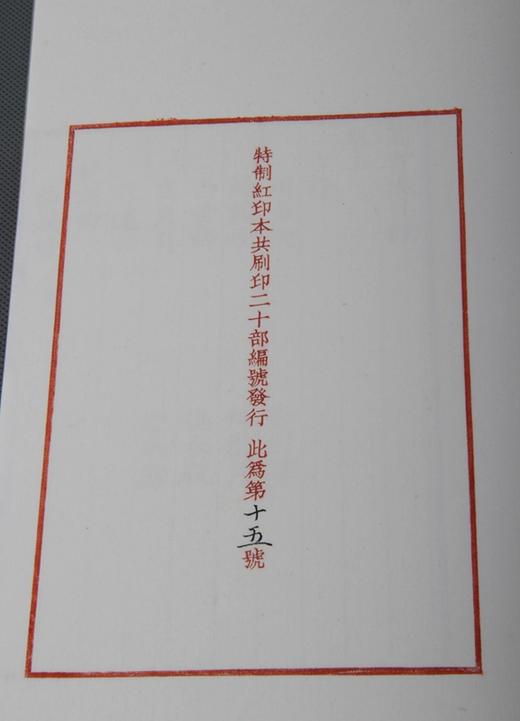 特制紅印本共刷印二十部編號發行 此爲第十五號